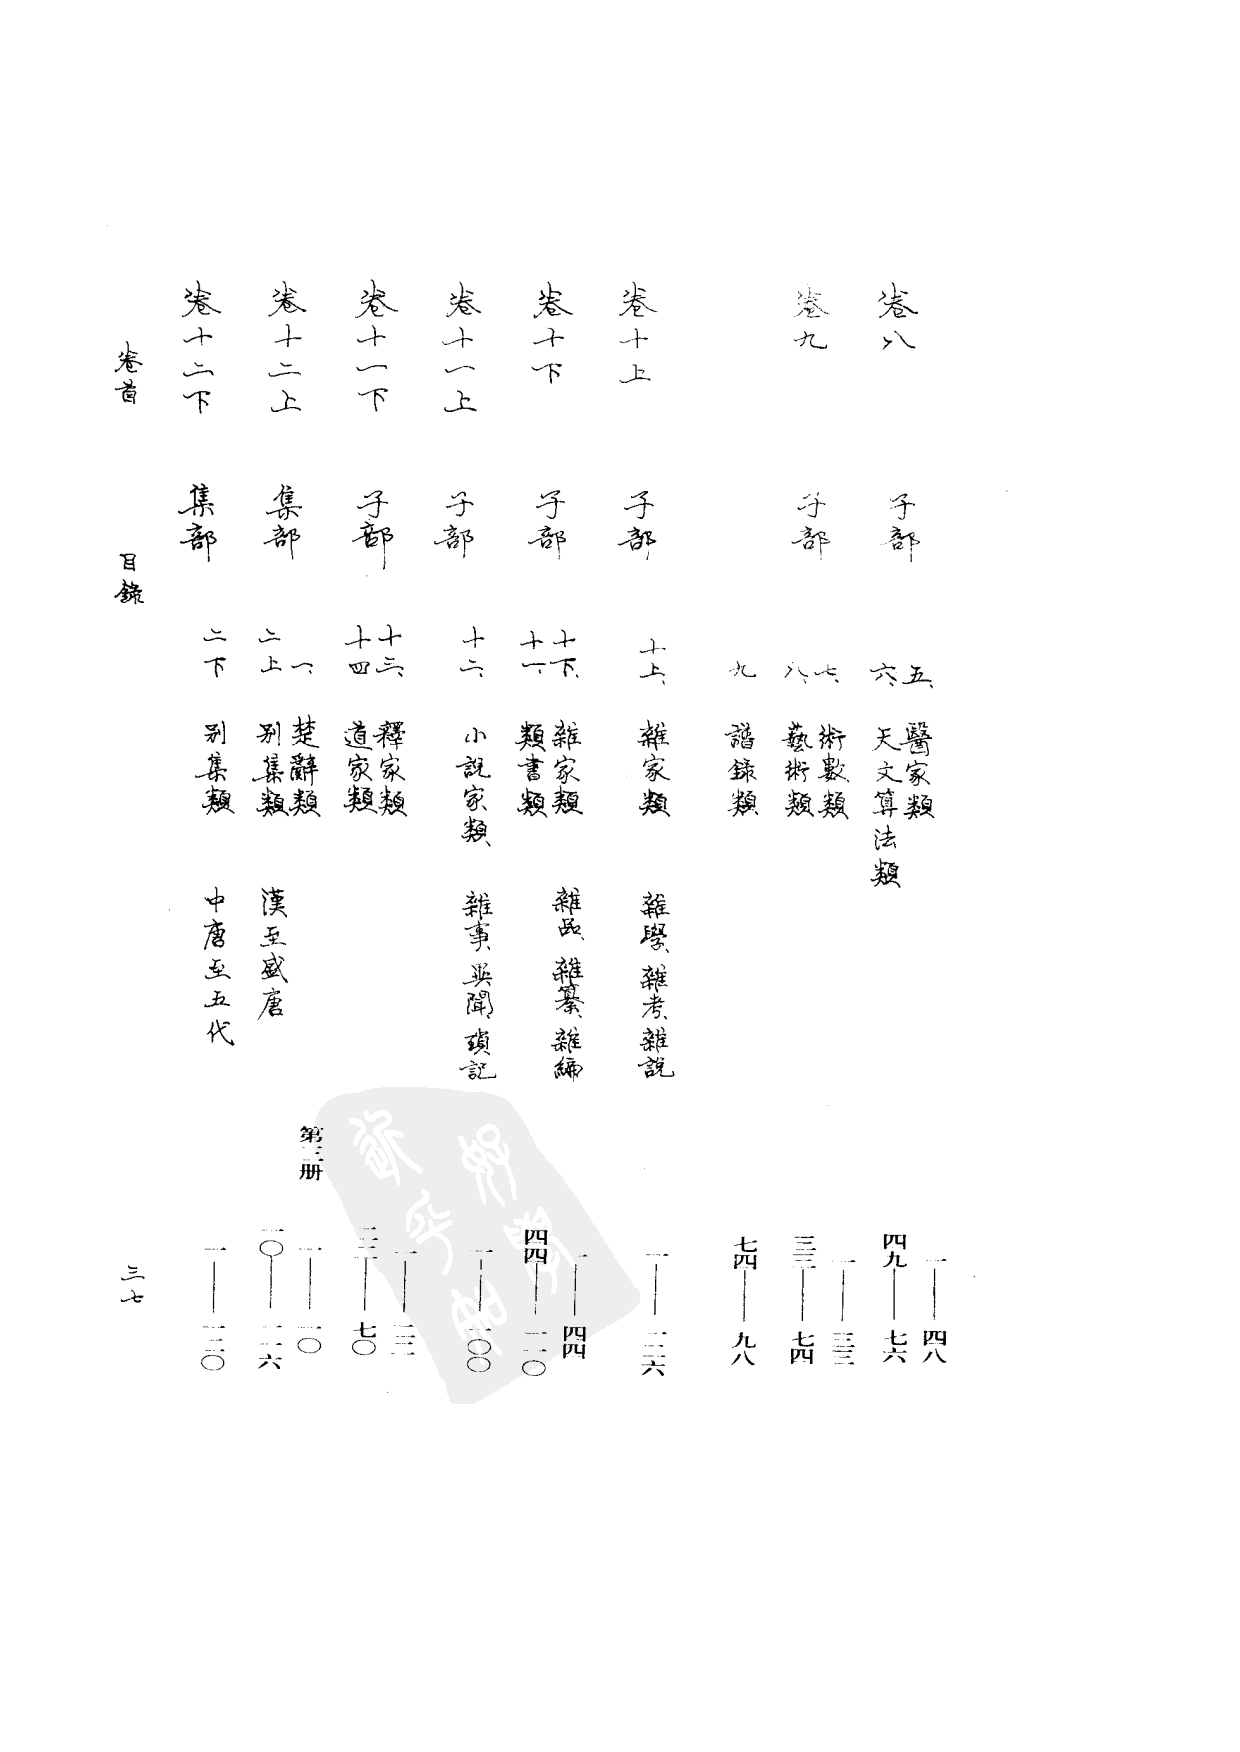 卷八 子部 五、醫家類 一——四八
六、天文算法類 四九——七六
卷九 子部 七、術數類 一——三三
八、藝術類 三三——七四
九 譜錄類 七四——九八
卷十上 子部 十上、雜家類 雜學、雜考、雜說 一——一二六
卷十下 子部 十下、雜家類 雜品、雜纂、雜編 一——四四
十一、類書類 四四——一一〇
卷十一上 子部 十二、小說家類、雜事、異聞、瑣記 一——一〇〇
卷十一下 子部 十三、釋家類 一——三三
十四 道家類 三三——七〇
第三册
卷十二上 集部 一、楚辭類 一——一〇
二上 别集類 漢至盛唐 一〇——一二六
卷十二下 集部 二下 别集類 中唐至五代 一——一三〇
卷首 目錄 三七